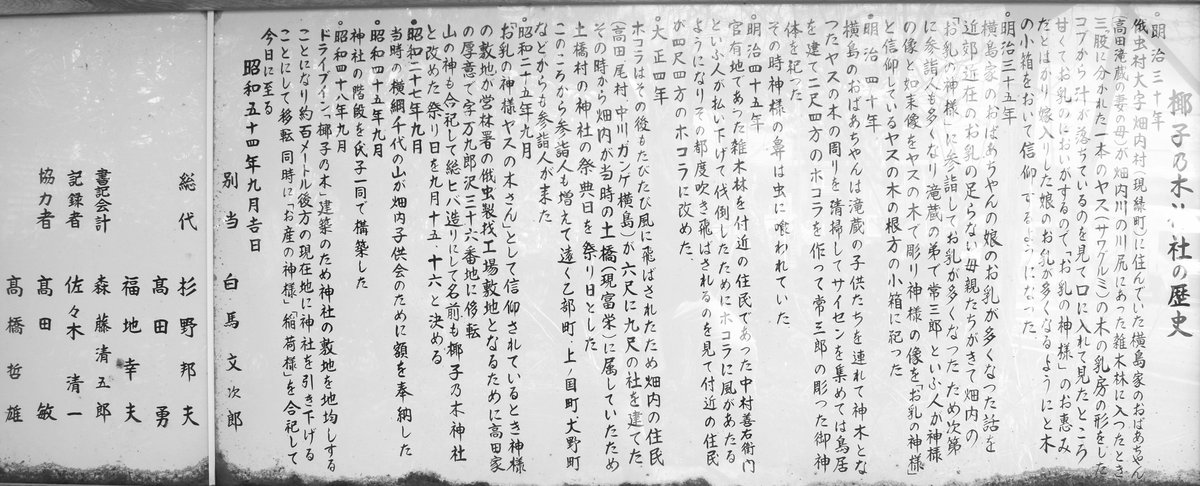 椰子乃木神社の歴史
◦明治三十年
俄虫村大字畑内村(現緑町)に住んでいた横島家のおばあちゃん
高田滝蔵の妻の母)が畑内川の川尻にあった雑木林に入ったとき
三股に分かれた一本のヤス(サワグルミ)の木の乳房の形をした
コブから汁が落ちているのを見て口に入れて見たところ
甘くてお乳のにおいがするので、「お乳の神様」のお恵み
だとばかり嫁入りした娘のお乳が多くなるようにと木
の小箱をおいて信仰するようになった
◦明治三十五年
横島家のおばあちゃんの娘のお乳が多くなった話を
近郊近在のお乳の足らない母親たちがきて畑内の
「お乳の神様」に参詣してお乳が多くなったため次第
に参詣人も多くなり滝蔵の弟で常三郎といふ人が神様
の像と如来像をヤスの木で彫り神様の像を「お乳の神様」
と信仰しているヤスの木の根方の小箱に祀った
◦明治四十年
横島のおばあちゃんは滝蔵の子供たちを連れて神木とな
ったヤスの木の周りを清掃してサイセンを集めては鳥居
を建て二尺四方のホコラを作って常三郎の彫った御神
体を祀った
その時神様の鼻は虫に喰われていた
◦明治四十五年
官有地であった雑木林を付近の住民であった中村善右衛門
といふ人が払い下げて伐倒したためにホコラに風があたる
ようになりその都度吹き飛ばされるのを見て付近の住民
が四尺四方のホコラに改めた。
◦大正四年
ホコラはその後もたびたび風に飛ばされたため畑内の住民
(高田尾村中川ガンゲ横島)が六尺に九尺の社を建てた、
その時から畑内が当時の土橋(現富栄)に属していたため
土橋村の神社の祭典日を祭り日とした
この、ころから参詣人も増えて遠く乙部町・上ノ国町・大野町
などからも参詣人が来た。
◦昭和二十五年九月
「お乳の神様ヤスの木さん」として信仰されているとき神様
の敷地が営林署の俄虫製材工場敷地となるために高田家
の厚意で字万九郎沢三十六番地に移転
山の神も合祀して総ヒバ造りにして名前も椰子乃木神社
と改めた祭り日を九月十五・十六と決める
◦昭和二十七年九月
当時の横綱千代の山が畑内子供会のために額を奉納した
◦昭和四十五年九月
神社の階段を氏子一同で構築した
◦昭和四十八年九月
ドライブイン「椰子の木」建築のため神社の敷地を地均しする
ことになり約百メートル後方の現在地に神社を引き下げる
ことにして移転 同時に「お産の神様」「稲荷様」を合祀して
今日に至る
昭和五十四年九月吉日
別当 白馬文次郎
総代 杉野邦夫
高田勇
福地幸夫
書記会計 森藤清五郎
記録者 佐々木清一
協力者 高田敏
高橋哲雄